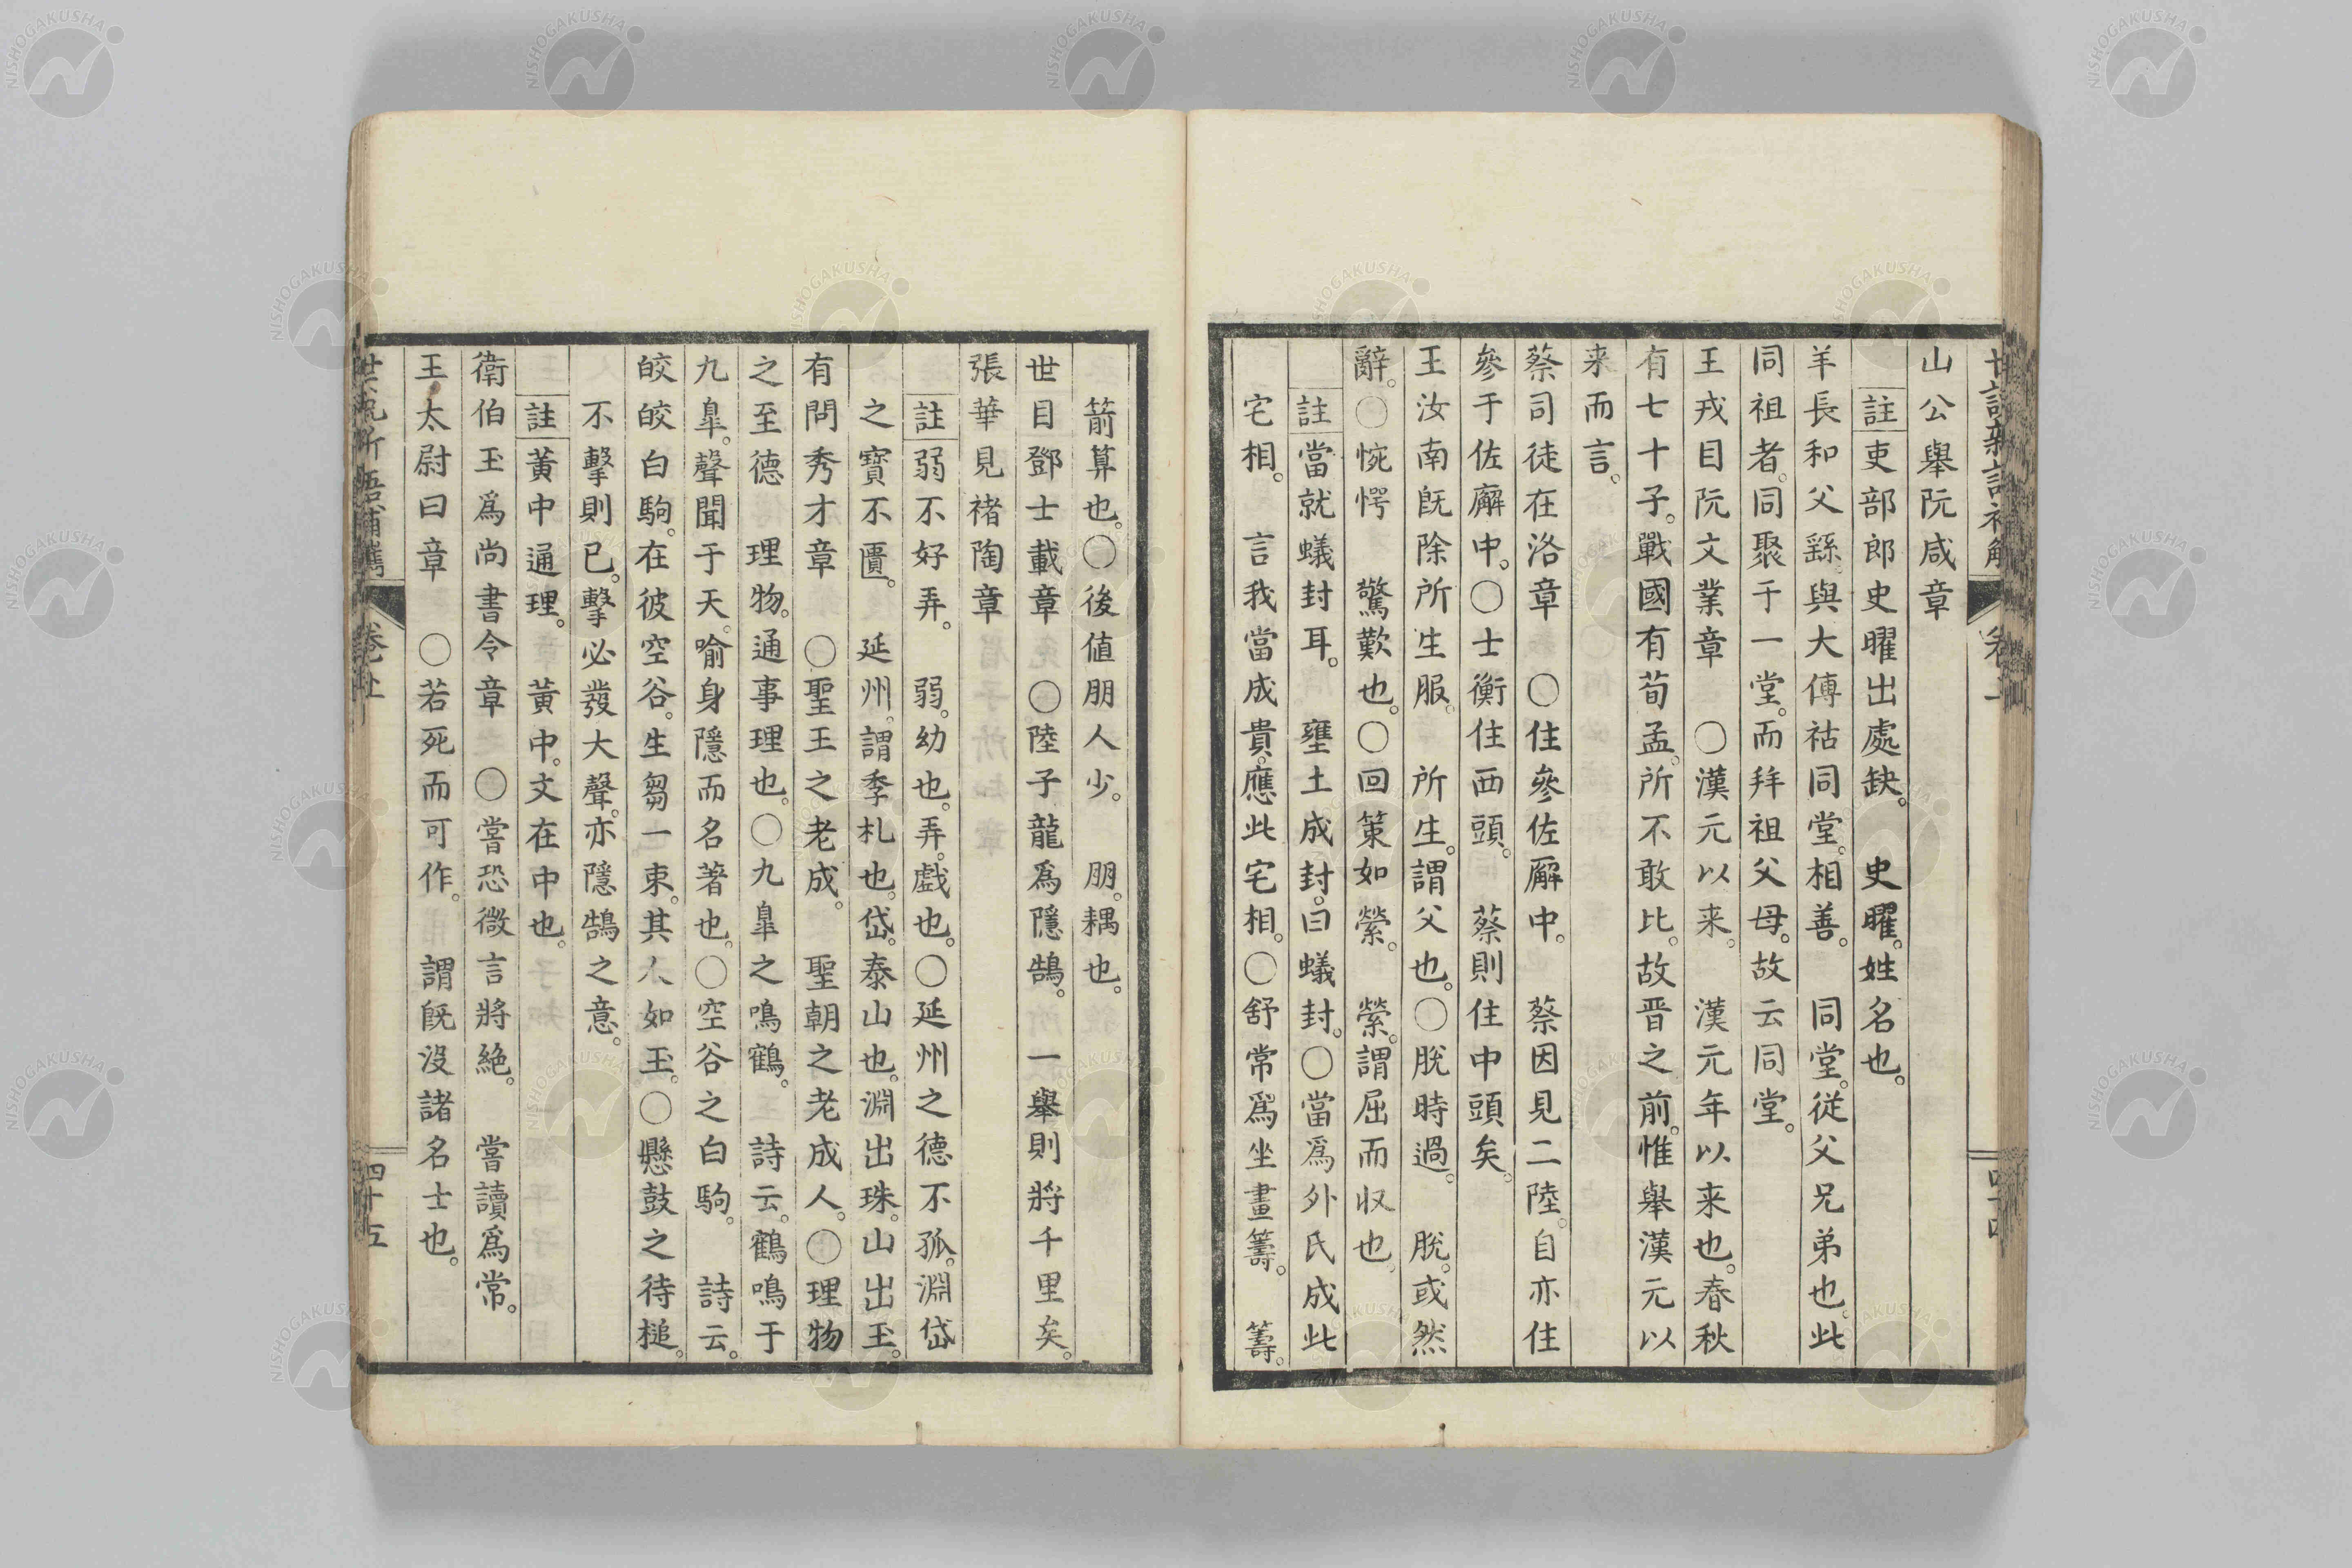 山公舉阮咸章
註吏部郎史曜出處缺。　史曜。姓名也。
羊長和父繇。與大傅祜同堂。相善。　同堂。従父兄弟也。此
同祖者。同聚于一堂。而拜祖父母。故云同堂。
王戎目阮文業章　〇漢元以来。　漢元年以来也。春秋
有七十子。戰國有荀孟。所不敢比。故晋之前。惟舉漢元以
来而言。
蔡司徒在洛章　〇住參佐廨中。　蔡因見二陸。自亦住
參于佐廨中。〇士衡住西頭。　蔡則住中頭矣。
王汝南旣除所生服。　所生。謂父也。〇脫時過。　脫。或然
辭。〇惋愕　驚歎也。〇回策如縈。　縈。謂屈而収也。
註當就蟻封耳。　壅土成封。曰蟻封。〇當爲外氏成此
宅相。　言我當成貴。應此宅相。〇舒常爲坐畫籌。　籌。
箭算也。〇後値朋人少。　朋。耦也。
世目鄧士載章　〇陸子龍爲隱鵠。　一舉則將千里矣。
張華見禇陶章
註弱不好弄。　弱。幼也。弄。戲也。〇延州之德不孤。淵岱
之寶不匱。　延州。謂季札也。岱。泰山也。淵出珠。山出玉。
有問秀才章　〇聖王之老成。　聖朝之老成人。〇理物
之至德　理物。通事理也。〇九臯之鳴鶴。　詩云。鶴鳴于
九臯。聲聞于天。喻身隱而名著也。〇空谷之白駒。　詩云。
皎皎白駒。在彼空谷。生芻一束。其人如玉。〇懸鼓之待槌。
不擊則已。擊必發大聲。亦隱鵠之意。
註黃中通理。　黃中。文在中也。
衛伯玉爲尚書令章　〇嘗恐微言將絶。　嘗讀爲常。
王太尉曰章　〇若死而可作。　謂旣沒諸名士也。
四十五